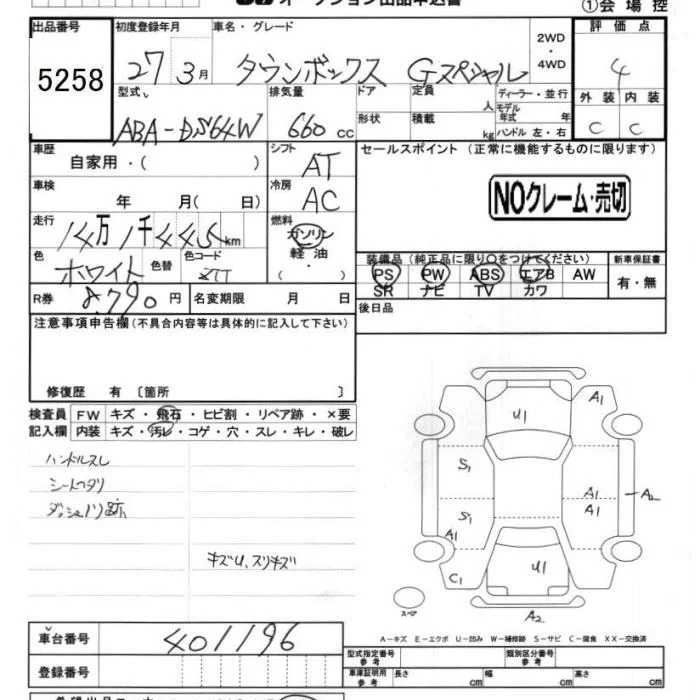 オークション出品申込書
①会場控
出品番号 5258
初度登録年月 27 3月
車名・グレード タウンボックス Gスペシャル
2WD・4WD
評価点 4
外装 C 内装 C
型式 ABA-DS64W
排気量 660 cc
ドア
形状
定員 人
積載 kg
ディーラー・並行
モデル年式 年
ハンドル 左・右
車歴 自家用・( )
シフト AT
車検 年 月( 日)
冷房 AC
走行 14万1千445km
燃料 ガソリン・軽油・
色 ホワイト 色替 色コード
R券 8.790円 名変期限 月 日
セールスポイント (正常に機能するものに限ります)
NOクレーム・売切
装備品 (純正品に限り○をつけてください)
PS PW ABS エアB AW
SR ナビ TV カワ
新車保証書 有・無
後日品
注意事項申告欄(不具合内容等は具体的に記入して下さい)
修復歴 有 〔箇所 〕
検査員記入欄
FW キズ・飛石・ヒビ割・リペア跡・×要
内装 キズ・汚レ・コゲ・穴・スレ・キレ・破レ
ハンドルスレ
シートヘタリ
ダッシュノリ跡
キズU、スリキズ
U1 A1
S1 A1 A1 A2
S1 A1
C1 U1
スペア A2
A-キズ E-エクボ U-凹み W-補修跡 S-サビ C-腐食 XX-交換済
車台番号 401196
登録番号
型式指定番号 参考
類別区分番号 参考
車庫証明用 参考 長さ cm 幅 cm 高さ cm